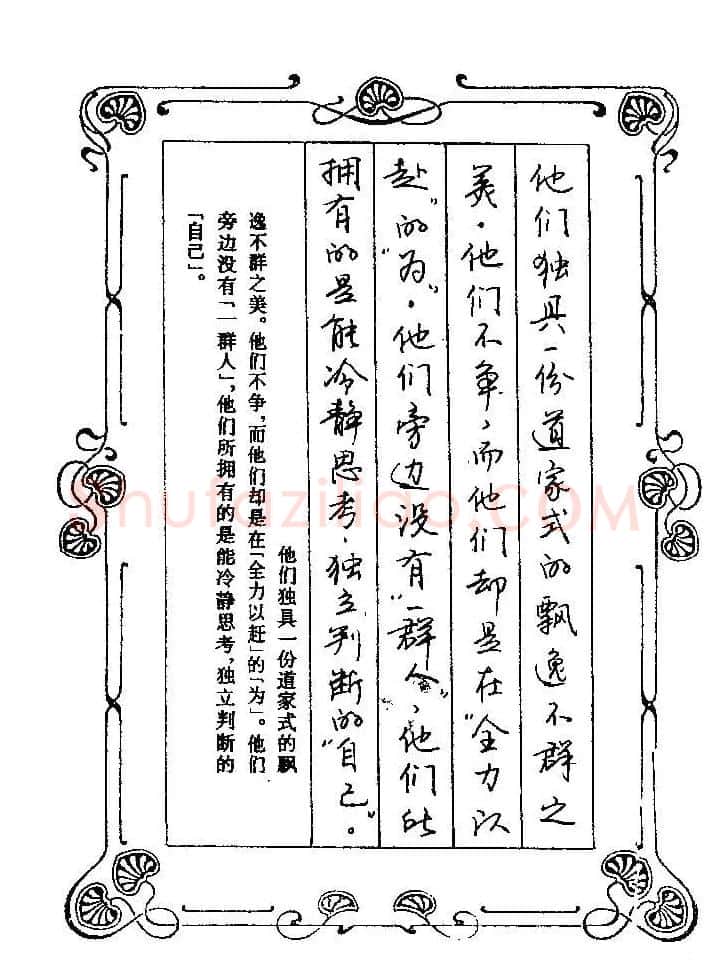 他们独具一份道家式的飘逸不群之
美。他们不争，而他们却是在“全力以
赴”的“为”。他们旁边没有“一群人”，他们所
拥有的是能冷静思考，独立判断的“自己”。
他们独具一份道家式的飘
逸不群之美。他们不争，而他们却是在「全力以赶」的「为」。他们
旁边没有「一群人」，他们所拥有的是能冷静思考，独立判断的
「自己」。
shufaziliao.COM